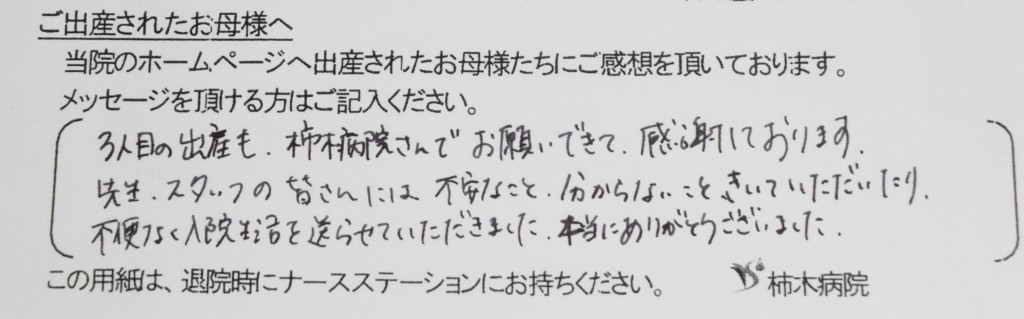 ご出産されたお母様へ
当院のホームページへ出産されたお母様たちにご感想を頂いております。
メッセージを頂ける方はご記入ください。
3人目の出産も、柿木病院さんでお願いできて、感謝しております。
先生、スタッフの皆さんには不安なこと、分からないこときいていただいたり、
不便なく入院生活を送らせていただきました。本当にありがとうございました。
この用紙は、退院時にナースステーションにお持ちください。
柿木病院